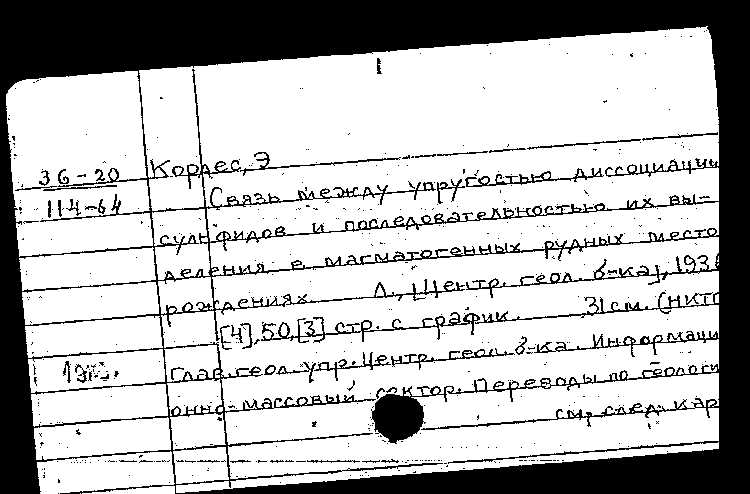 36-20
114-64
Кордес, Э
Связь между упругостью диссоциации
сульфидов и последовательностью их вы-
деления в магматогенных рудных место
рождениях. Л., [Центр. геол. б-ка], 193
[4], 50, [3] стр. с график. 31 см. (НКТП
Глав. геол. упр. Центр. геол. б-ка. Информаци
онно-массовый сектор. Переводы по геологи
см. след. кар